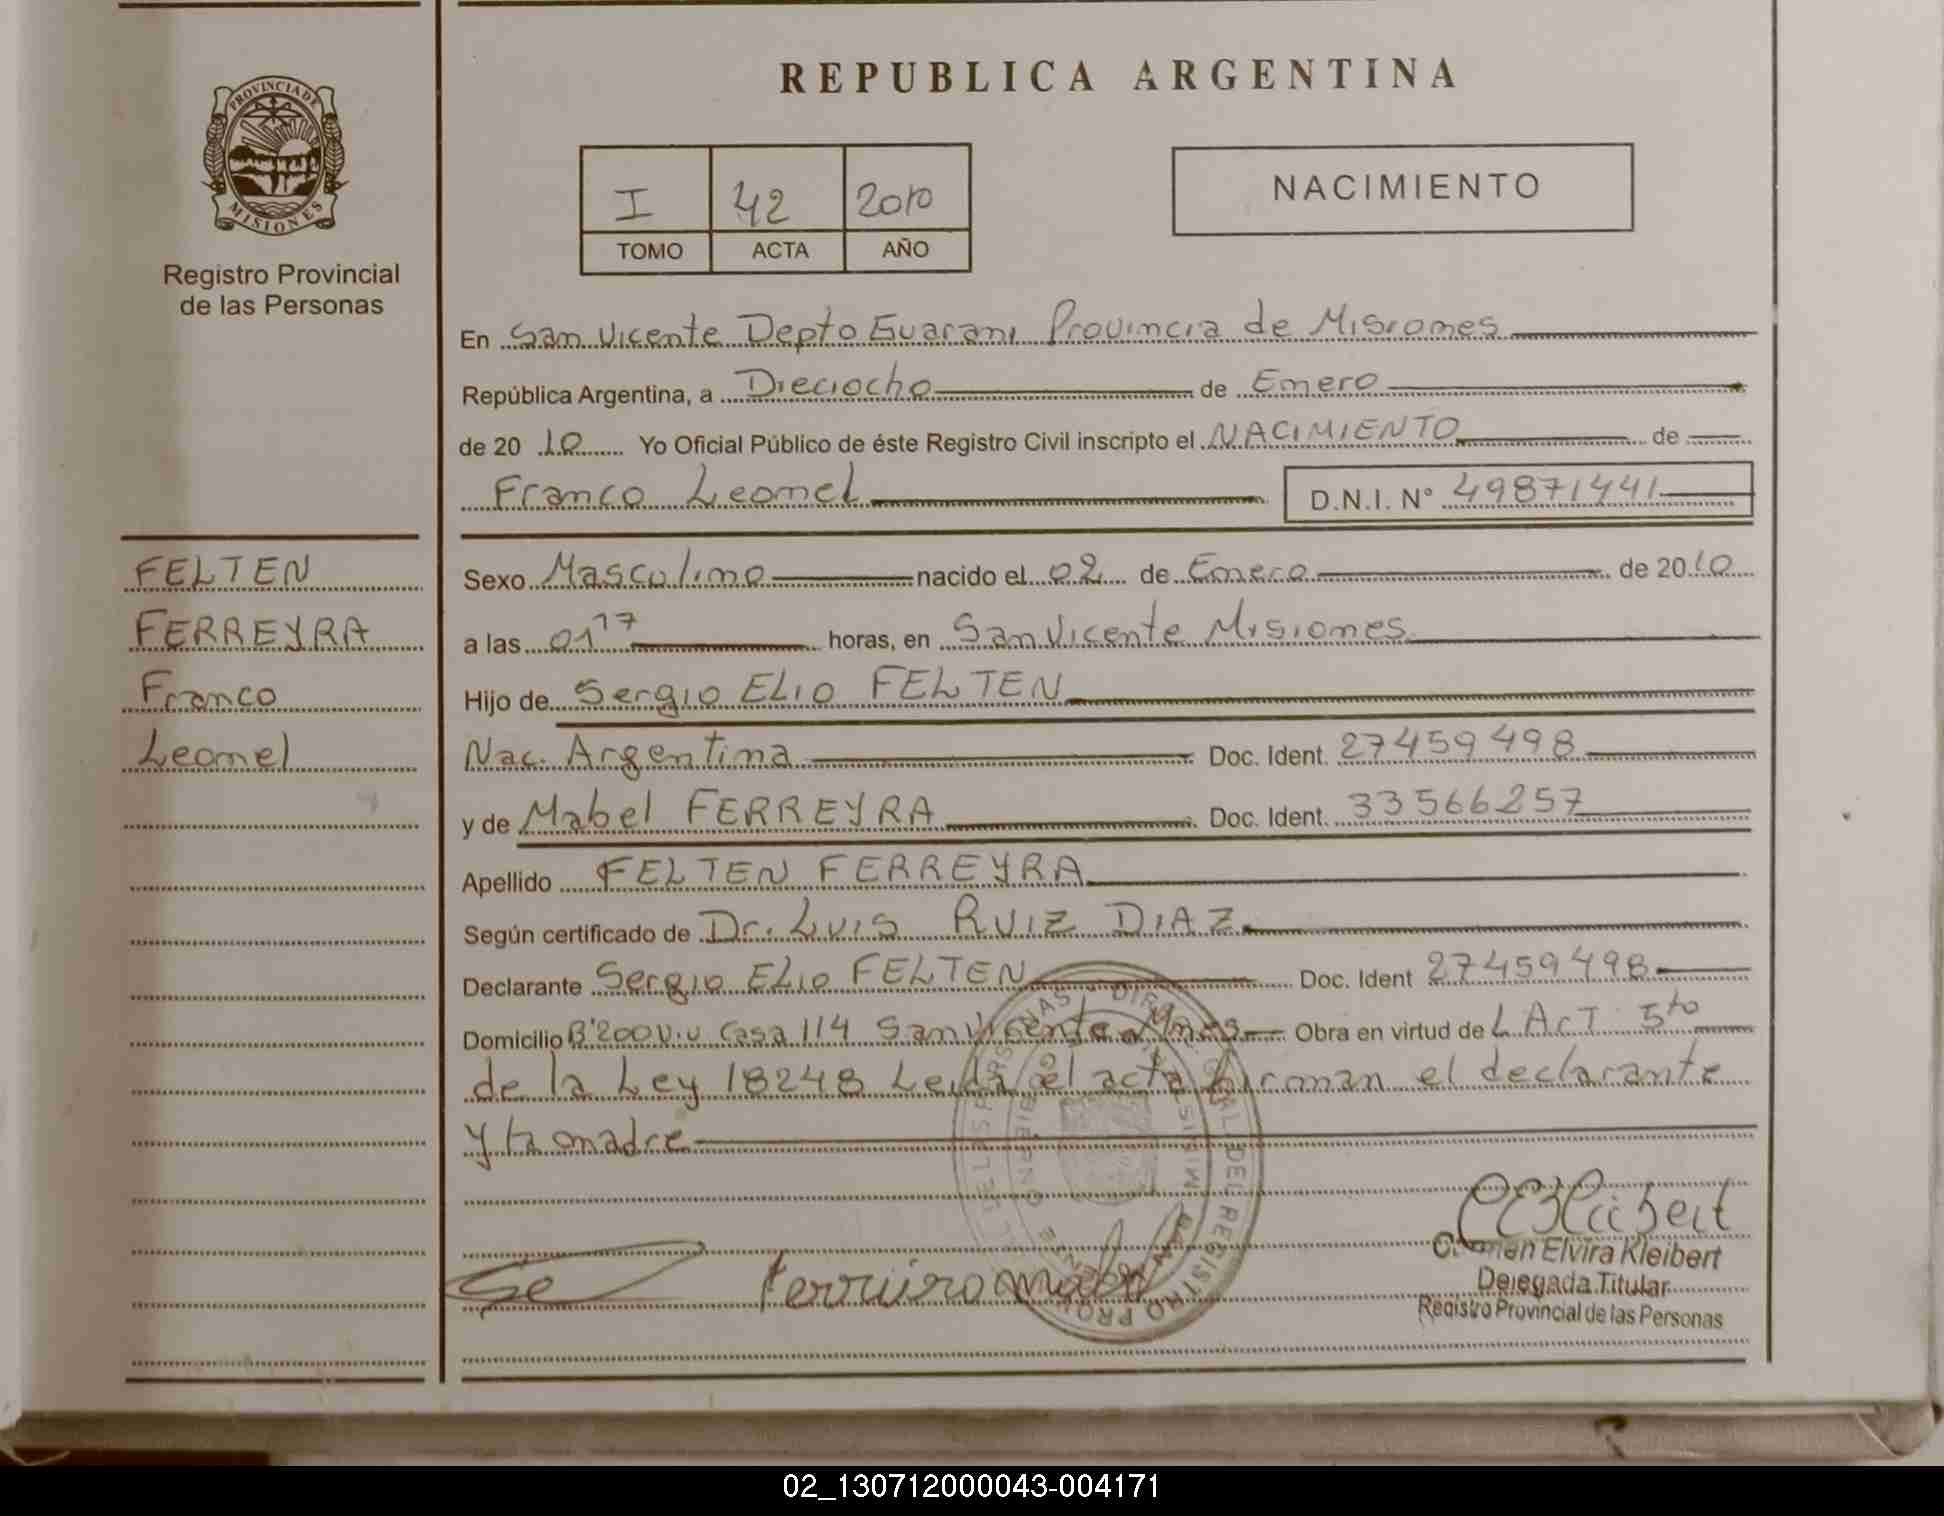 REPUBLICA ARGENTINA
PROVINCIA DE
MISIONES
Registro Provincial
de las Personas
I 42 2010
TOMO ACTA AÑO
NACIMIENTO
En San Vicente Depto Guarani Provincia de Misiones
República Argentina, a Dieciocho de Enero
de 20 10 Yo Oficial Público de éste Registro Civil inscripto el NACIMIENTO de
Franco Leonel D.N.I. N° 49871441
FELTEN
FERREYRA
Franco
Leonel
Sexo Masculino nacido el 02 de Enero de 2010
a las 01 17 horas, en San Vicente Misiones
Hijo de Sergio ELIO FELTEN
Nac. Argentina Doc. Ident. 27459498
y de Mabel FERREYRA Doc. Ident. 33566257
Apellido FELTEN FERREYRA
Según certificado de Dr. LUIS RUIZ DIAZ
Declarante Sergio ELIO FELTEN Doc. Ident 27459498
Domicilio B° 200 V.V Casa 114 San Vicente Mnes Obra en virtud de L ArT 5to
de la Ley 18248 Leida el acta firman el declarante
y la madre
Carmen Elvira Kleibert
Delegada Titular
Registro Provincial de las Personas
02_130712000043-004171